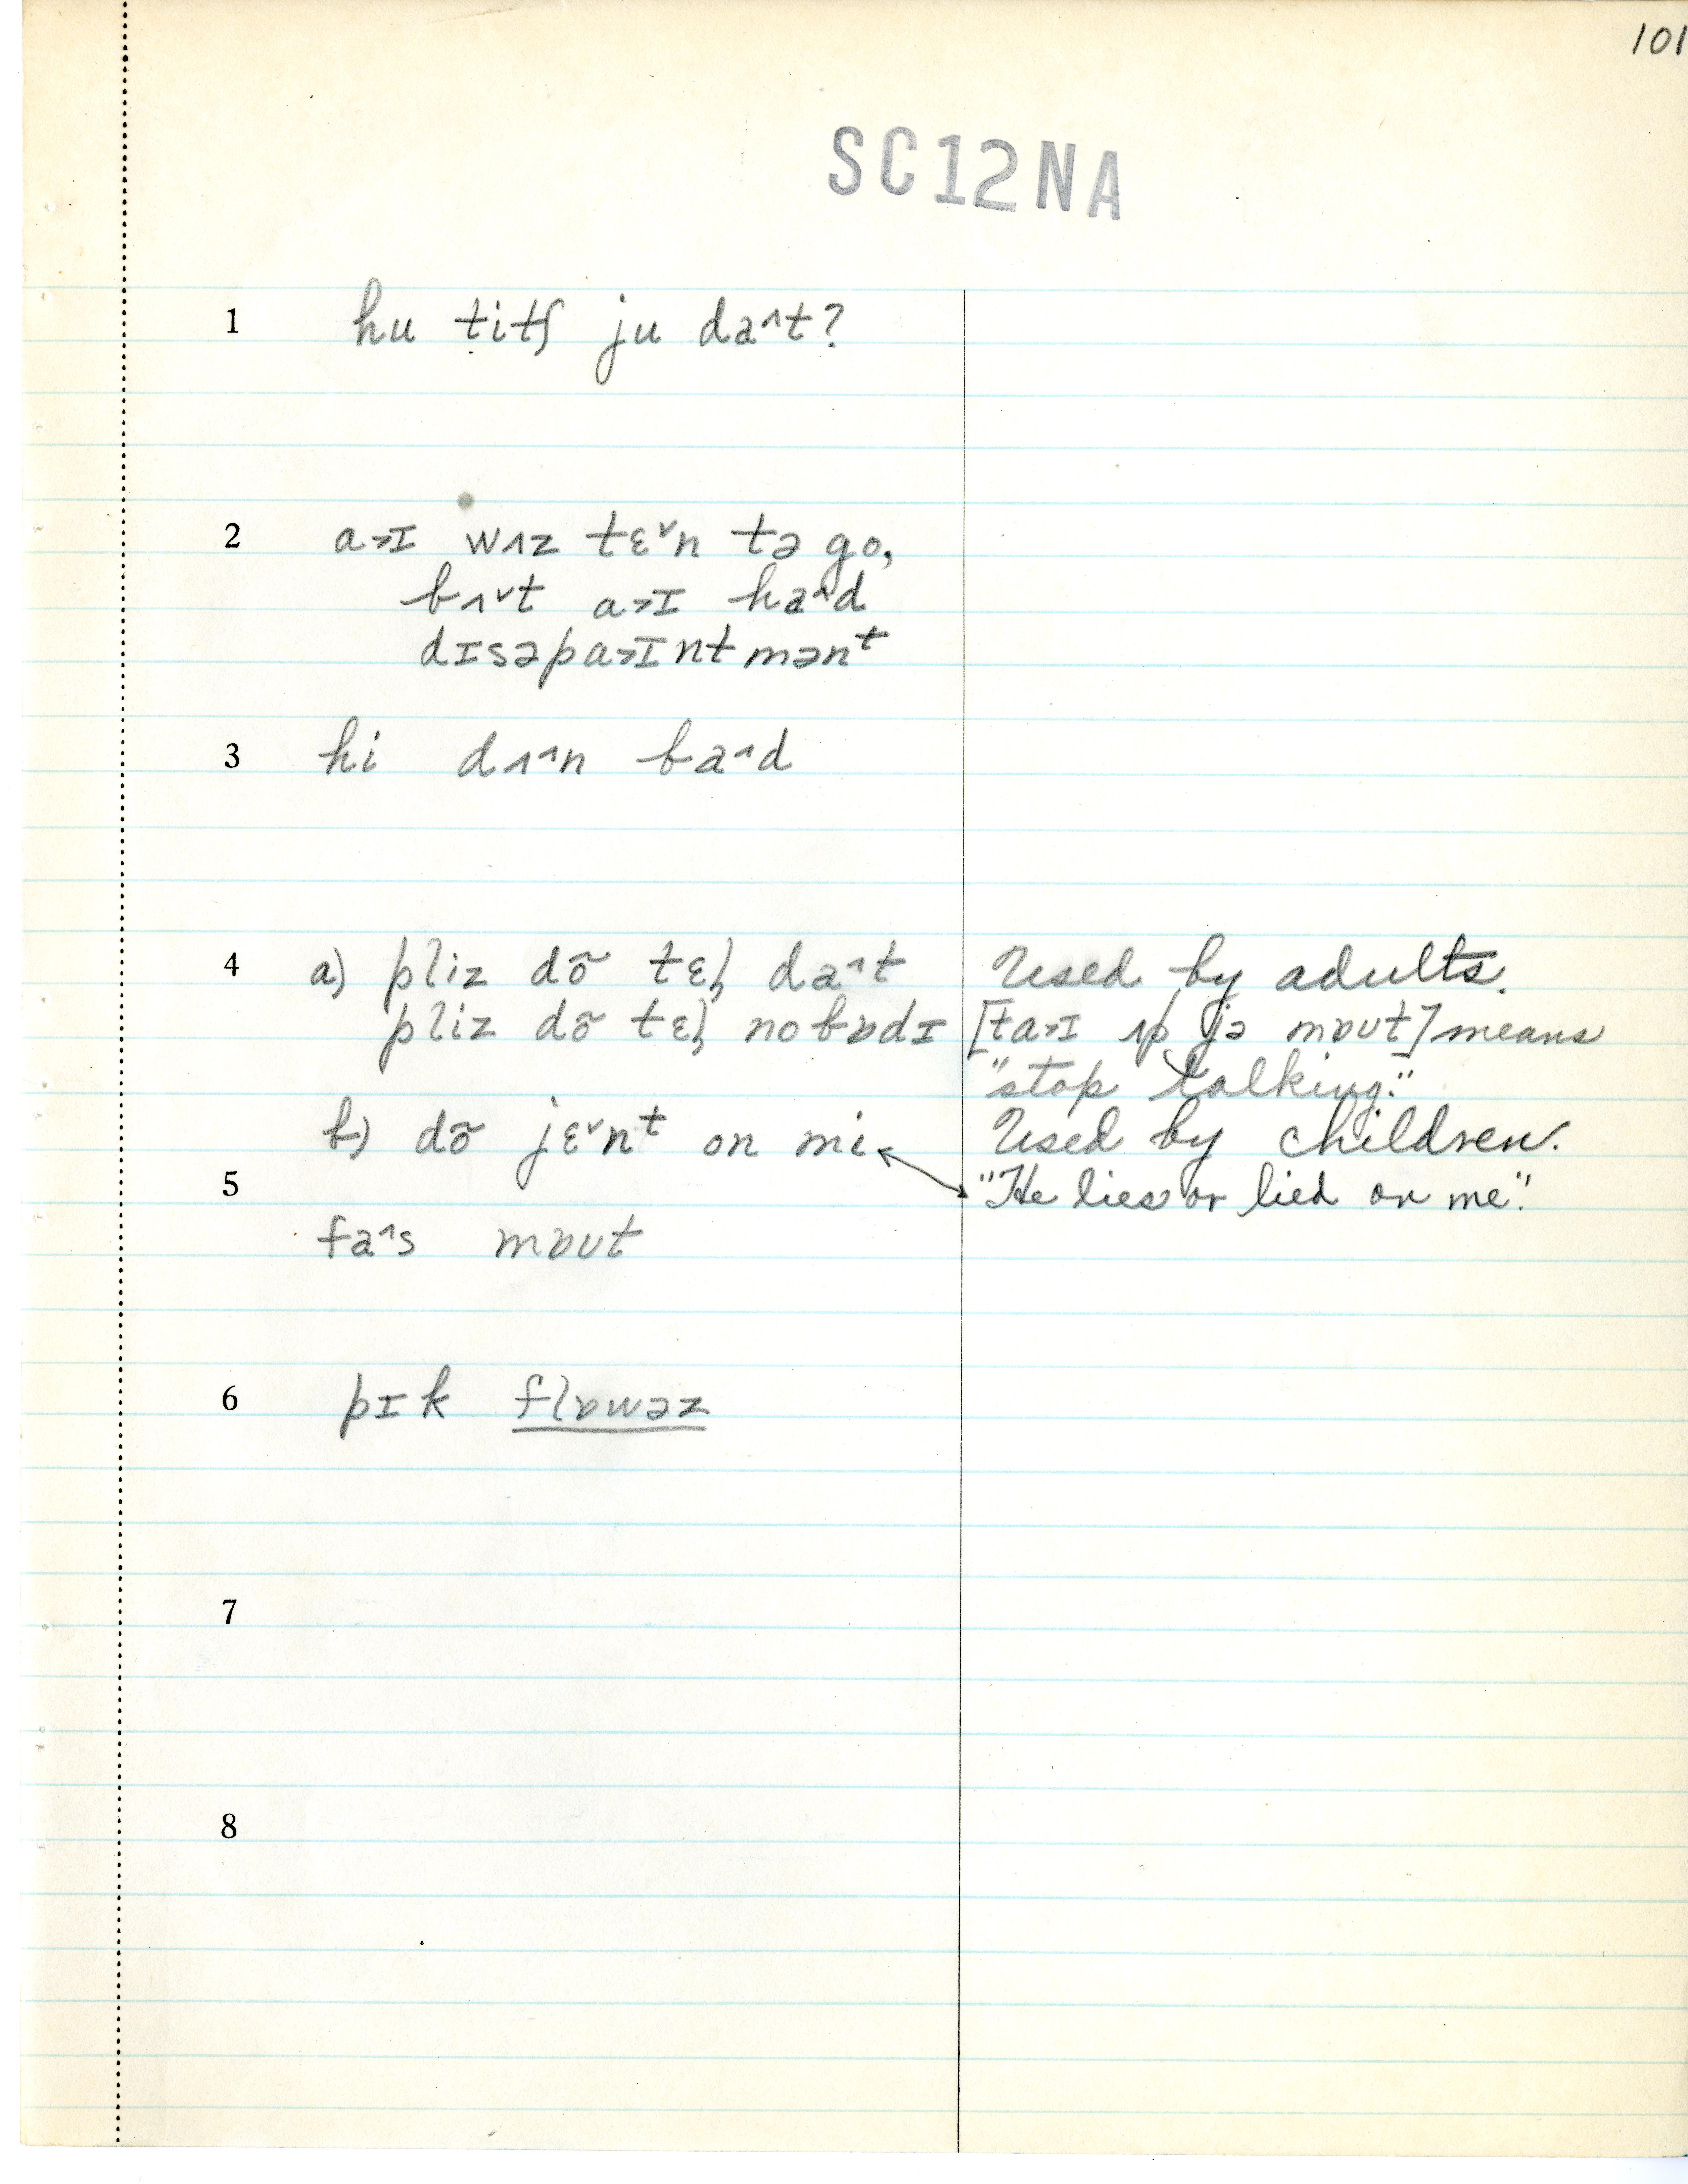 101
SC12NA
1 hu titʃ ju da^t?
2 a˃ɪ wʌz tɛ˅n tə go,
bʌ˅t a˃ɪ ha^d
dɪsəpa˃ɪntmənᵗ
3 hi dʌ^n ba^d
4 a) pliz dõ tɛl̩ da^t Used by adults.
pliz dõ tɛl̩ nobɒdɪ [ta˃ɪ ʌp jə mɒut] means
"stop talking."
b) dõ jɛ˅nᵗ on mi Used by children.
5 "He lies or lied on me."
fa^s mɒut
6 pɪk flɒwəz
7
8